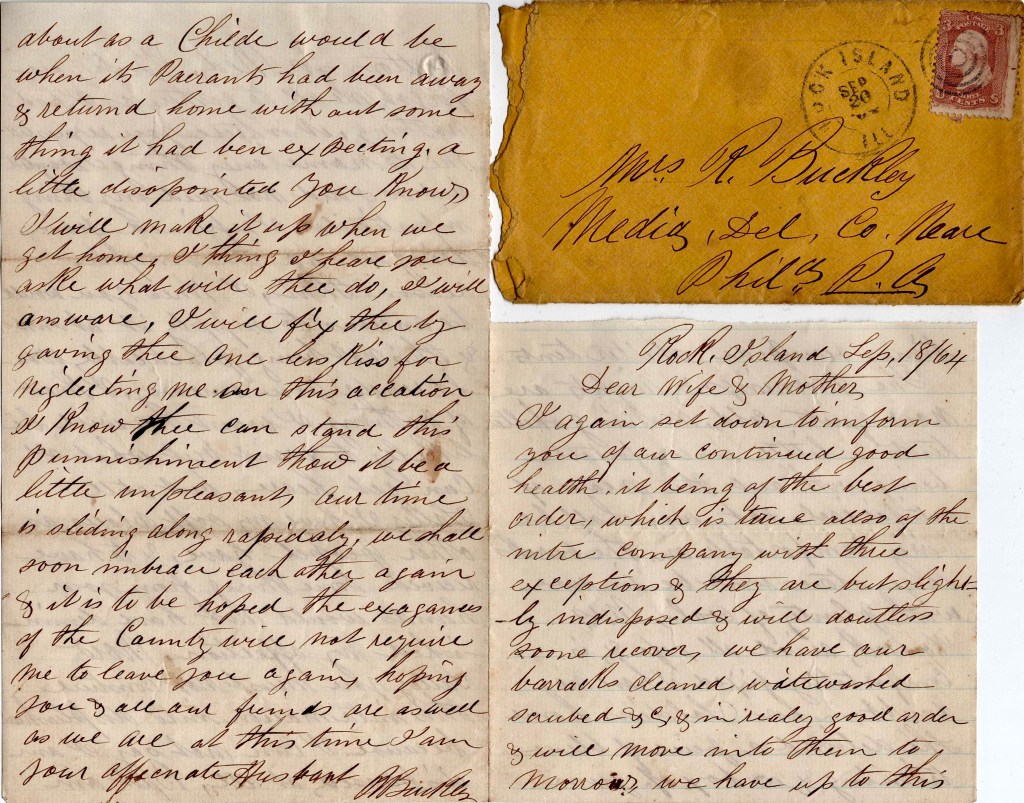 about as a Childe would be
when its Paerants had been away
& returnd home with out some
thing it had ben expecting. a
little disopointed you Know,
I will make it up when we
get home, I thing I heare you
aske what will thee do, I will
answare, I will fix thee by
gaving thee one less Kiss for
neglecting me on this accation
I Know thee can stand this
punnishiment thow it be a
little unpleasant, our time
is sliding along rapidaly, we shall
soon imbrace each other again
& it is to be hoped the exagances
of the Country will not require
me to leave you again, hoping
you & all our friends are as well
as we are at this time I am
your affecnate Husbant
Buckley
ROCK ISLAND
SEP
20
ILL
3 3
CENTS
Mrs. R. Buckley
Media, Del, Co. Neare
Phila P. A
Rock, Island Sep, 18/64
Dear Wife & Mother
I again set down to inform
you of our continued good
health. it being of the best
order, which is true allso of the
intire company with three
exceptions & they are but slight-
-ly indisposed & will doutless
soone recover, we have our
barracks cleaned witewashed
scrubed &c, & in realy good order
& will move into them to
morrow, we have up to this